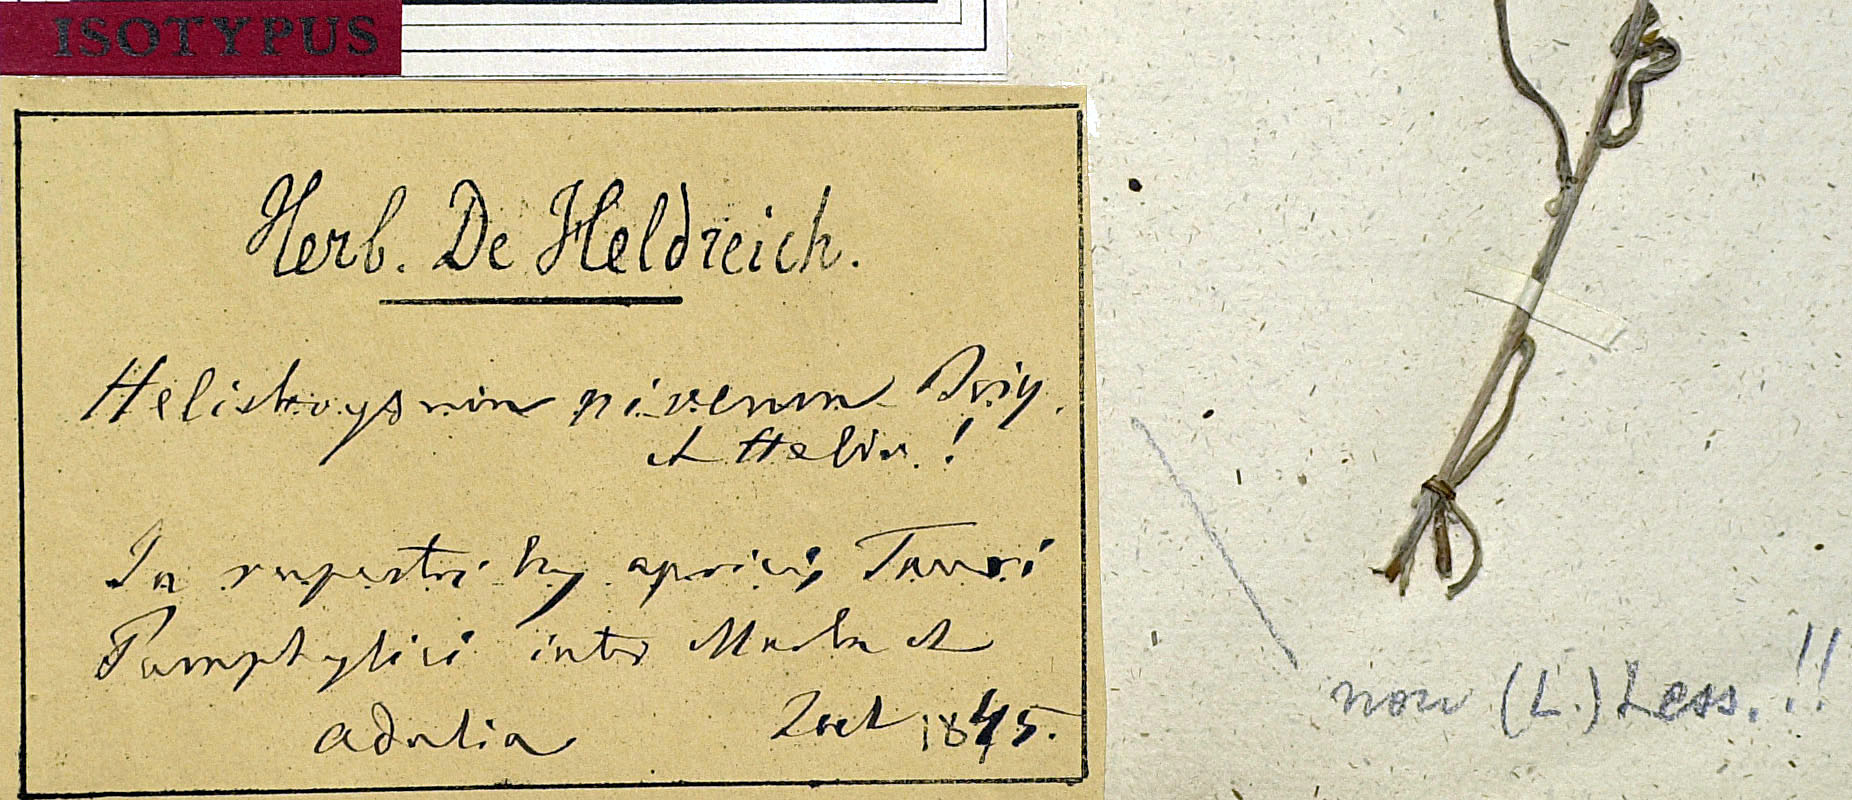 ISOTYPUS
Herb. De Heldreich.
Helichrysum niveum Boiss.
et Heldr.!
In rupestribus apricis Tauri
Pamphylici inter et
Adalia 1845.
non (L.) Less. !!